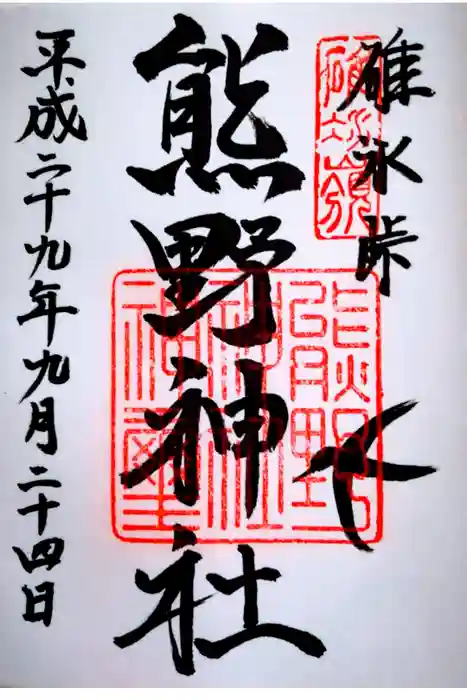 碓氷峠
熊野神社
平成二十九年九月二十四日
碓氷嶺
熊野
神社
神璽